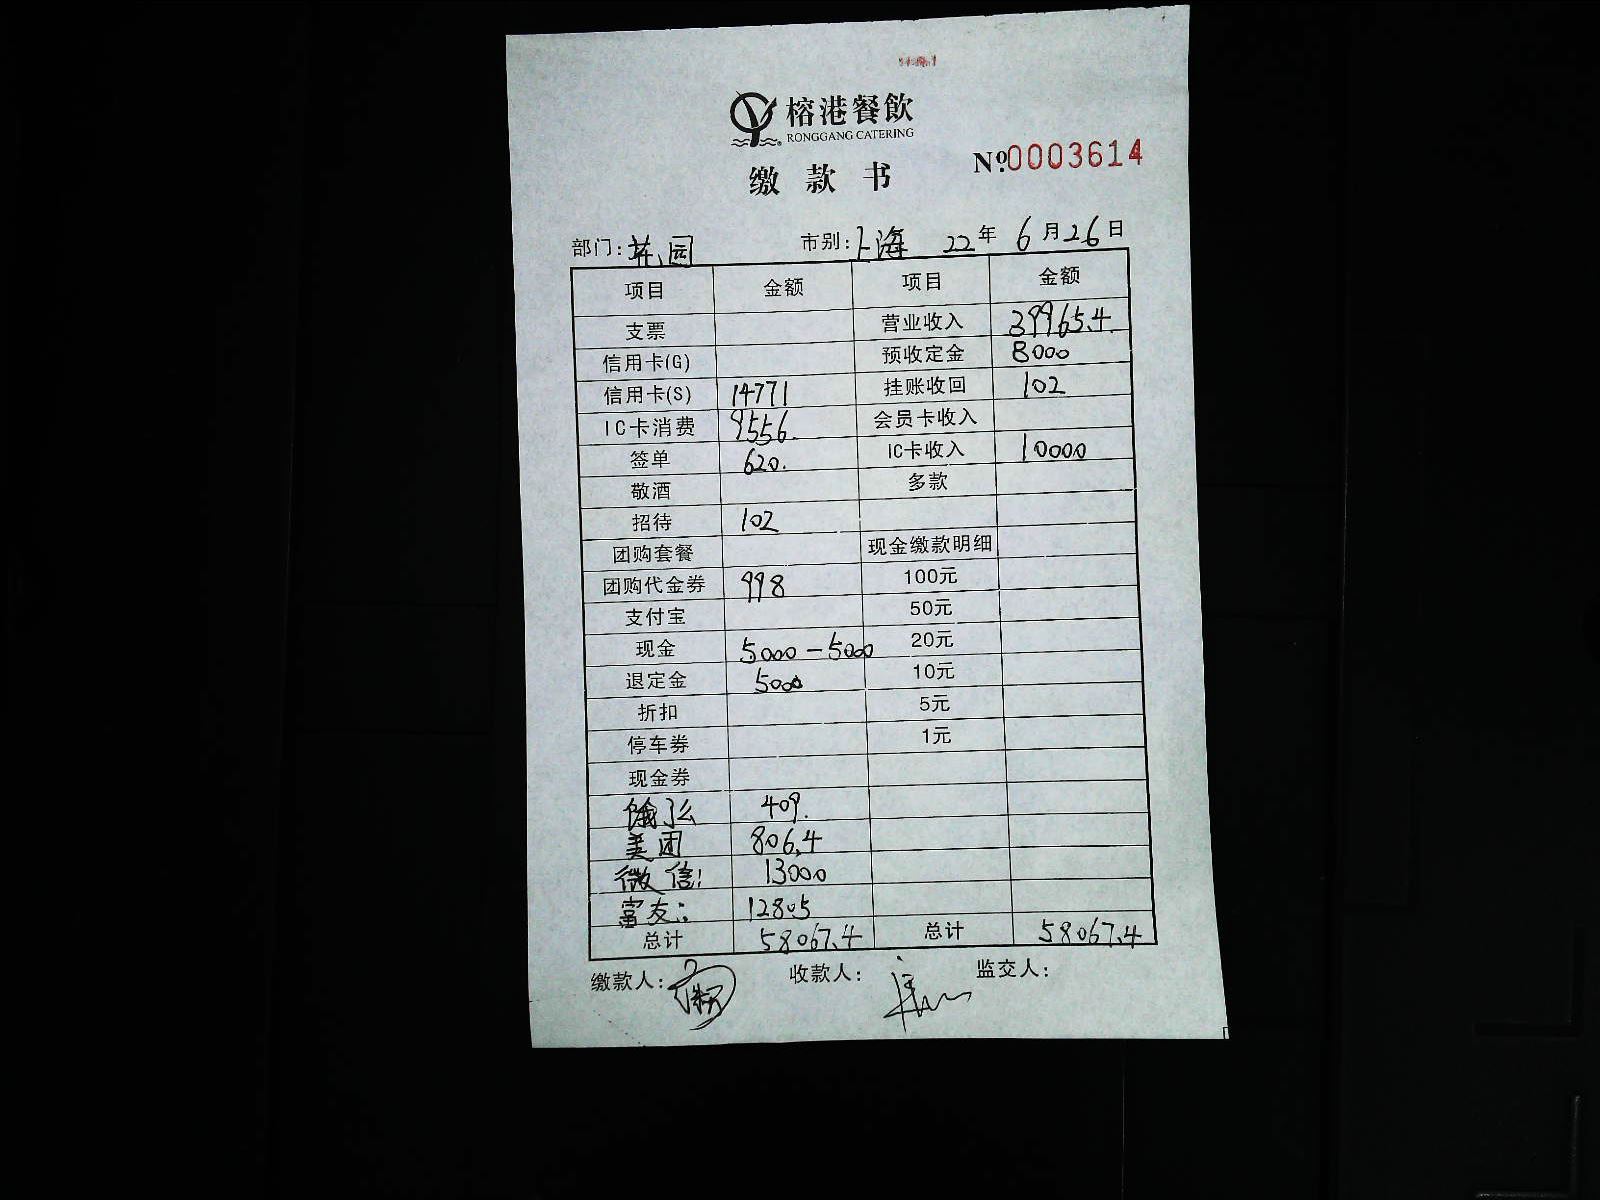 榕港餐飲
RONGGANG CATERING
缴款书
№0003614
部门:花园 市别:上海 22年6月26日
项目 金额 项目 金额
支票 营业收入 39965.4
信用卡(G) 预收定金 8000
信用卡(S) 14771 挂账收回 102
IC卡消费 9556. 会员卡收入
签单 620. IC卡收入 10000
敬酒 多款
招待 102
团购套餐 现金缴款明细
团购代金券 998 100元
支付宝 50元
现金 5000-5000 20元
退定金 5000 10元
折扣 5元
停车券 1元
现金券
饿了么 409.
美团 806.4
微信: 13000
富友: 12805
总计 58067.4 总计 58067.4
缴款人: 收款人: 监交人: